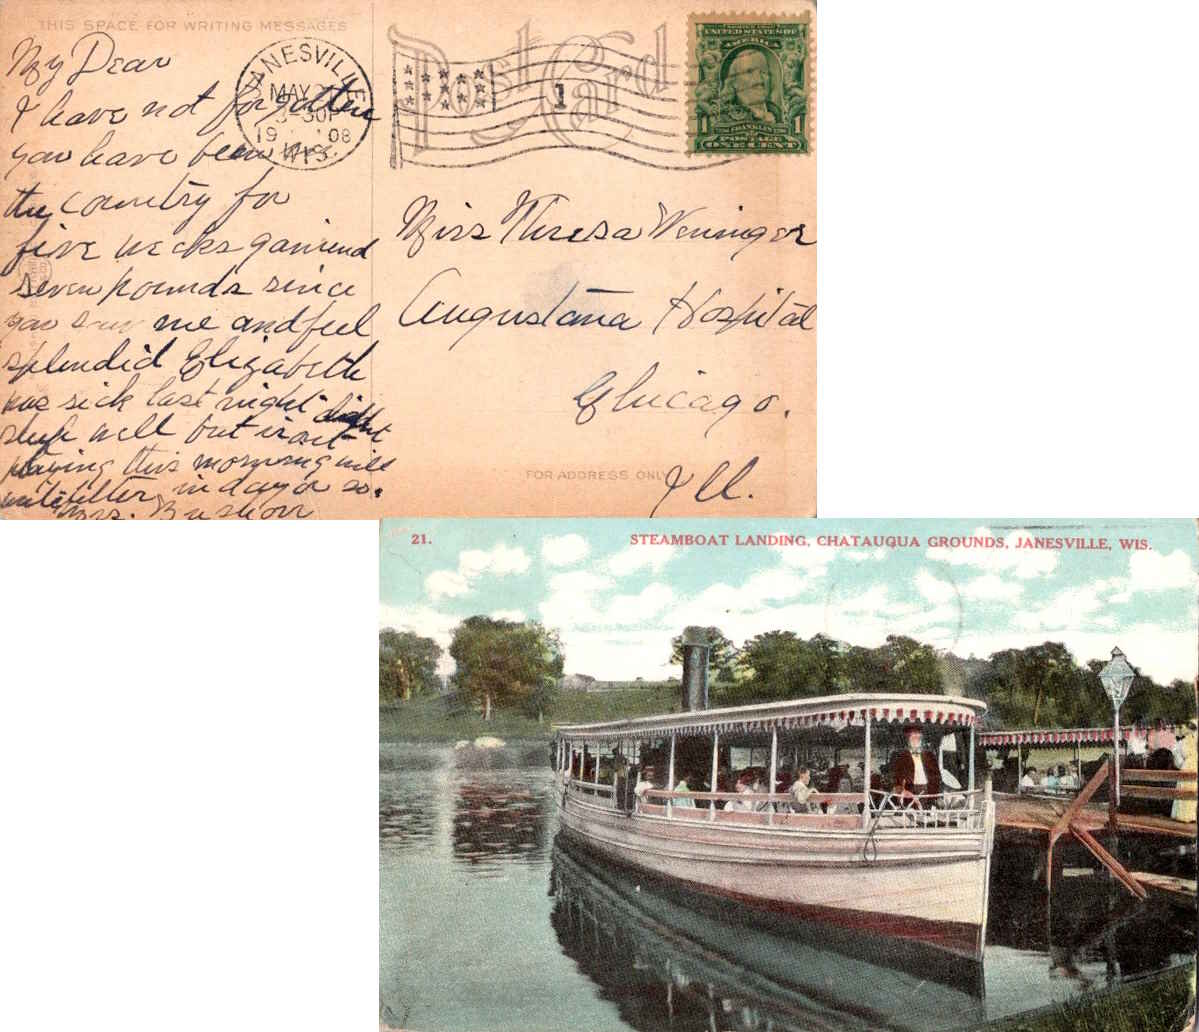 THIS SPACE FOR WRITING MESSAGES
My Dear
I have not forgotten
you have been in
the country for
five weeks gained
seven pounds since
you saw me and feel
splendid Elizabeth
was sick last night didnt
sleep well but is out
playing this morning will
write letter in day or so.
Mrs.
JANESVILLE
MAY
3-30P
1908
WIS.
Post Card
1
UNITED STATES OF
AMERICA
1 FRANKLIN 1
POSTAGE
ONE CENT
Miss Theresa Weninger
Augustana Hospital
Chicago.
FOR ADDRESS ONLY
Ill.
21. STEAMBOAT LANDING, CHATAUQUA GROUNDS, JANESVILLE, WIS.